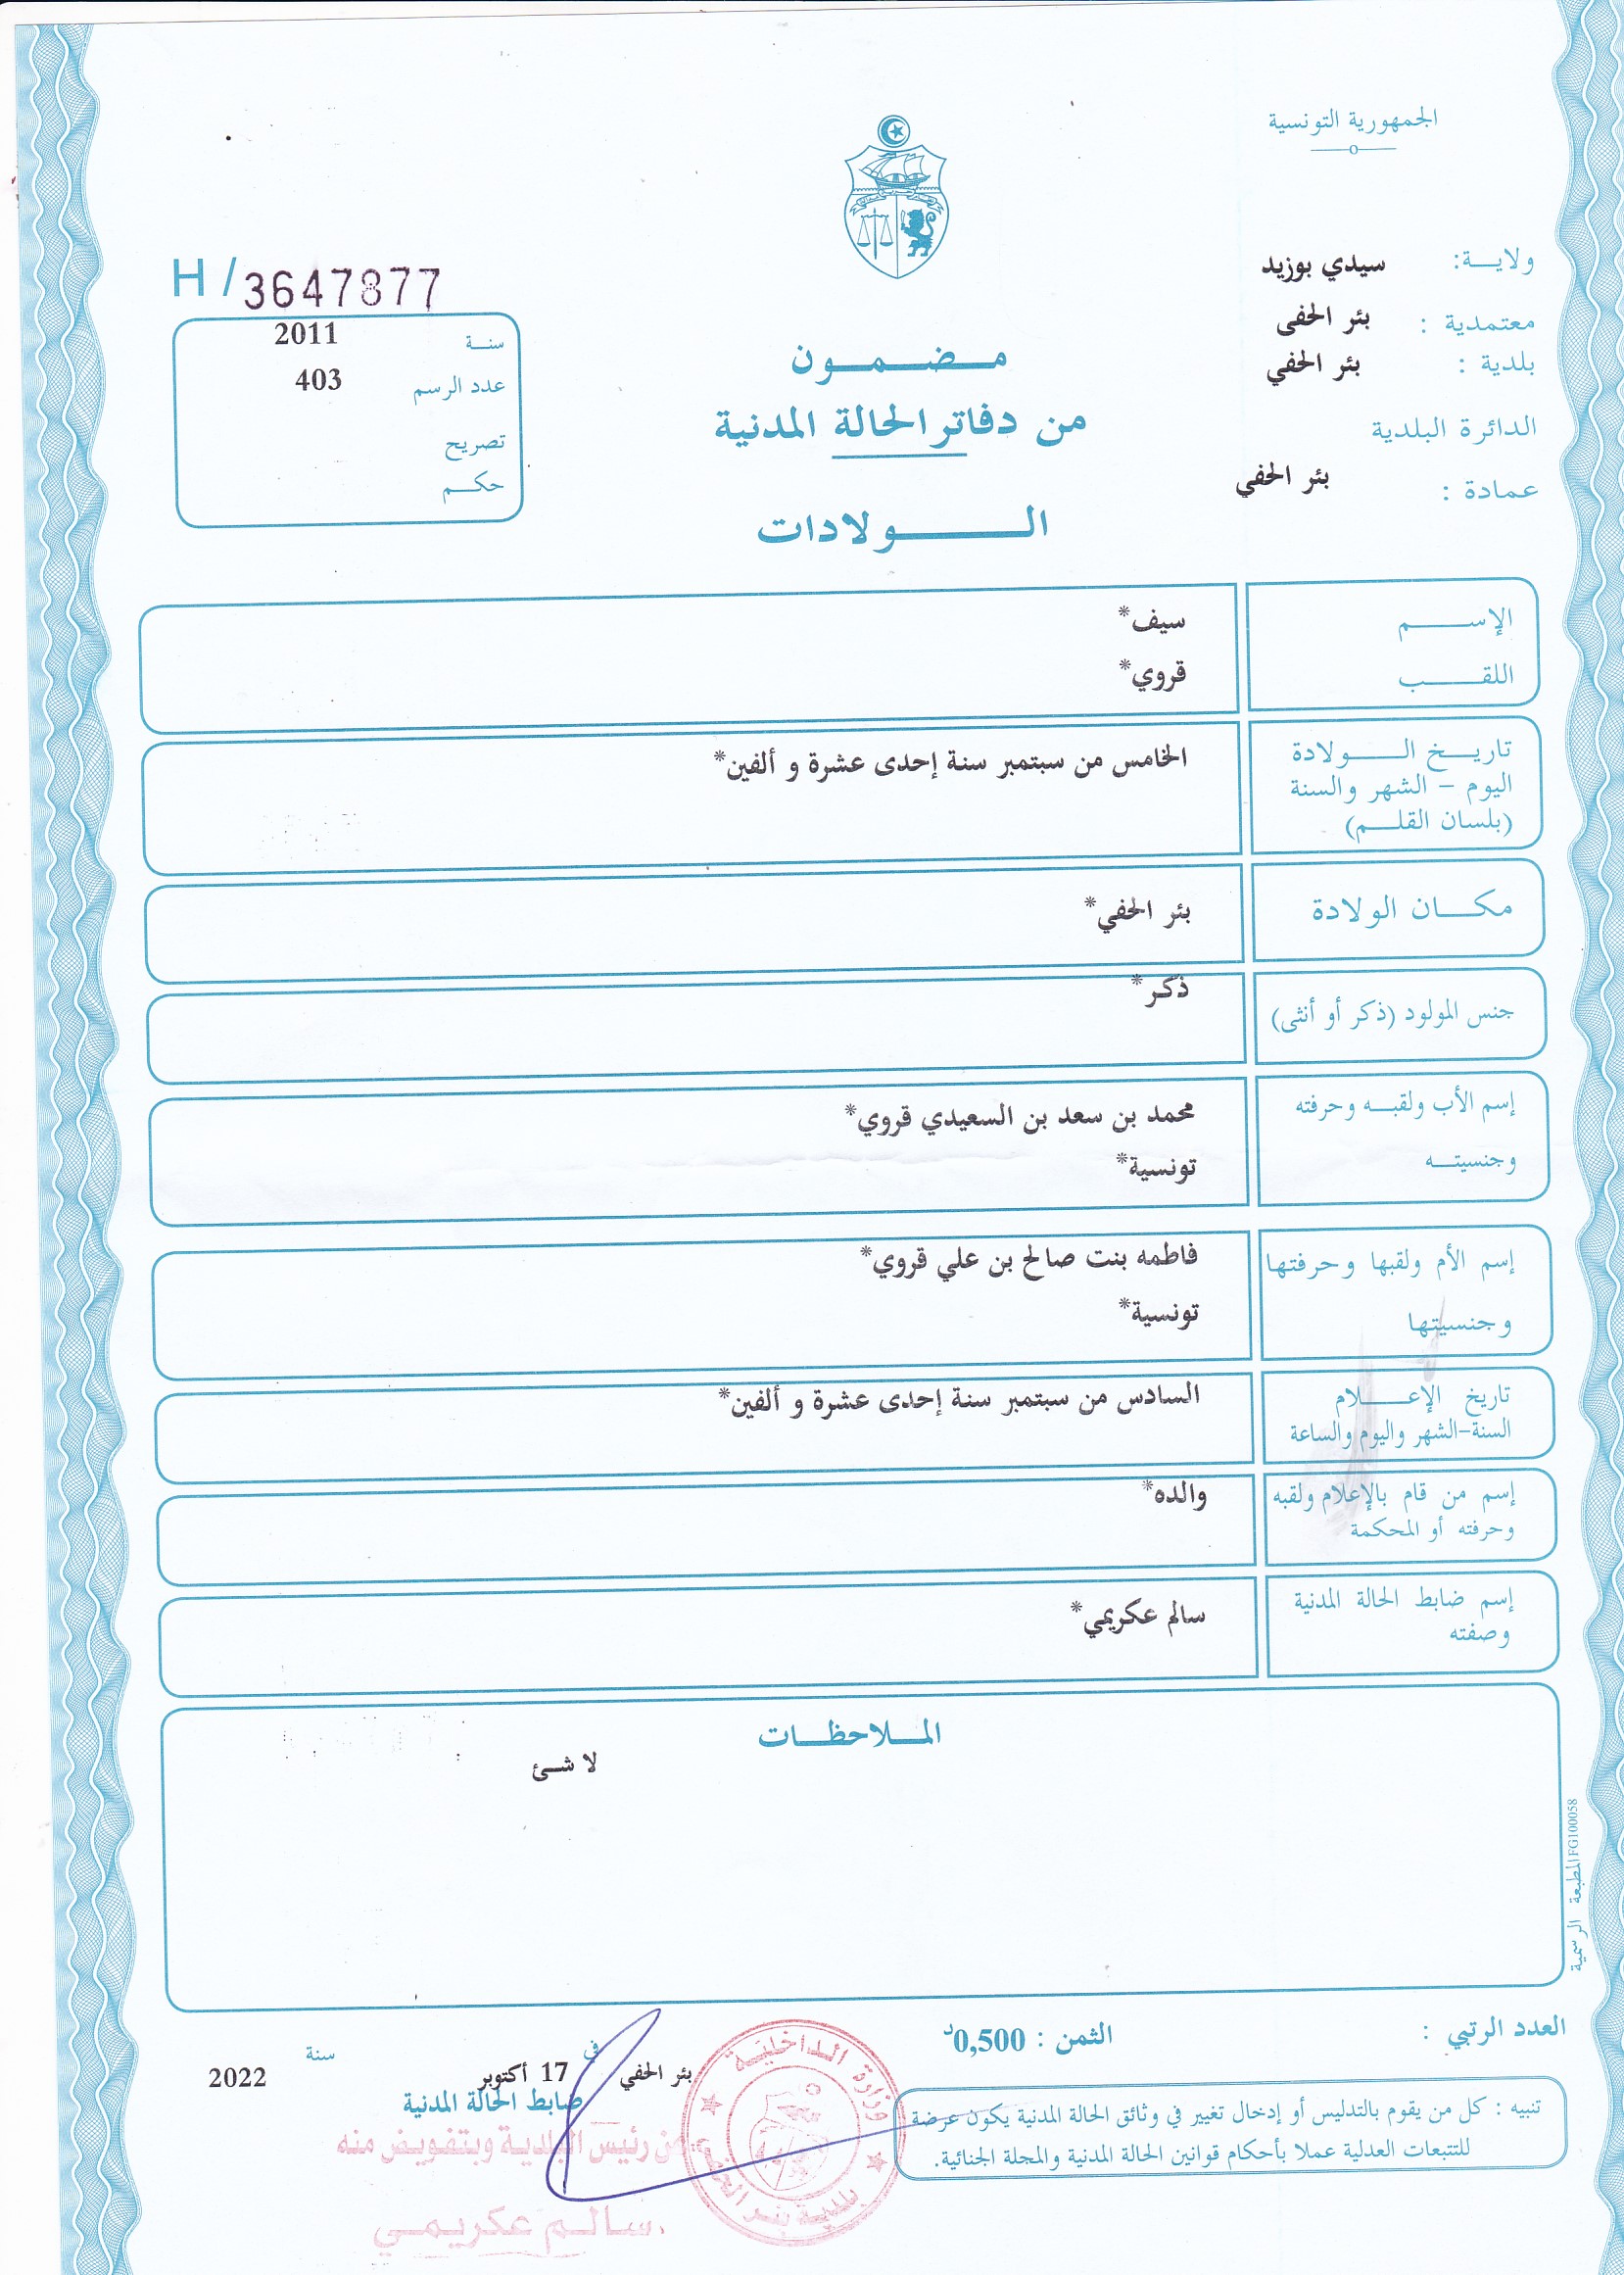 الجمهورية التونسية
ولايـــة: سيدي بوزيد
معتمدية : بئر الحفى
بلدية : بئر الحفي
الدائرة البلدية
عمادة : بئر الحفي
H / 3647877
سنــة 2011
عدد الرسم 403
تصريح
حكــم
مـــضـــمــــون
من دفاتر الحالة المدنية
الـــــــولادات
الإســــــم
سيف*
اللقــــــب
قروي*
تاريـــخ الــــــولادة
اليوم – الشهر والسنة
(بلسان القلــم)
الخامس من سبتمبر سنة إحدى عشرة و ألفين*
مكـــــان الولادة
بئر الحفي*
جنس المولود (ذكر أو أنثى)
ذكر*
إسم الأب ولقبــه وحرفته
محمد بن سعد بن السعيدي قروي*
وجنسيتــه
تونسية*
إسم الأم ولقبها وحرفتها
فاطمه بنت صالح بن علي قروي*
وجنسيتها
تونسية*
تاريخ الإعـــــلام
السنة-الشهر واليوم والساعة
السادس من سبتمبر سنة إحدى عشرة و ألفين*
إسم من قام بالإعلام ولقبه
وحرفته أو المحكمة
والده*
إسم ضابط الحالة المدنية
وصفته
سالم عكريمي*
المــلاحظــات
لا شئ
المطبعة الرسمية FG100058
العدد الرتبي :
الثمن : 0,500د
بئر الحفي في 17 أكتوبر سنة 2022
ضابط الحالة المدنية
تنبيه : كل من يقوم بالتدليس أو إدخال تغيير في وثائق الحالة المدنية يكون عرضة
للتتبعات العدلية عملا بأحكام قوانين الحالة المدنية والمجلة الجنائية.
عن رئيس البلدية وبتفويض منه
سالم عكريمي
وزارة الداخلية
بلدية بئر الحفي